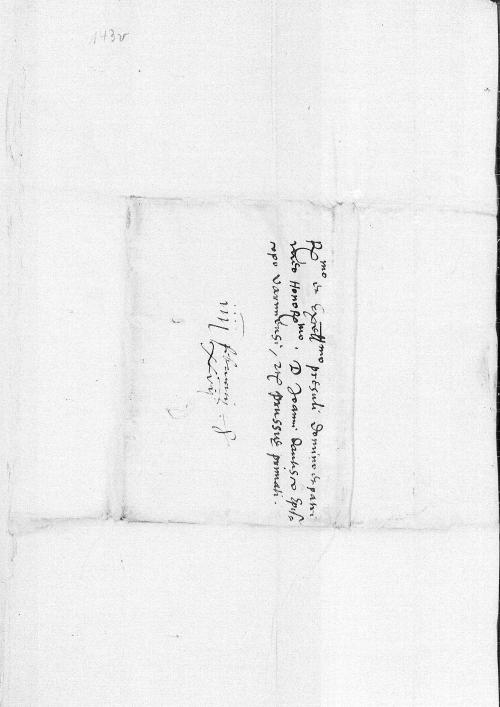 143v
R^mo et Exell^mo presuli Domino et patri
vnico Honor^mo. D Joanni Dantisco Epis=
copo Varmiensi, zc prussie primati.
iiij februarij